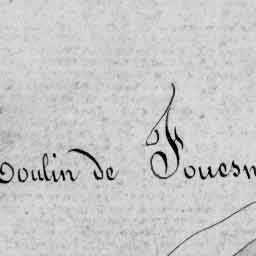 oulin de Fouesn